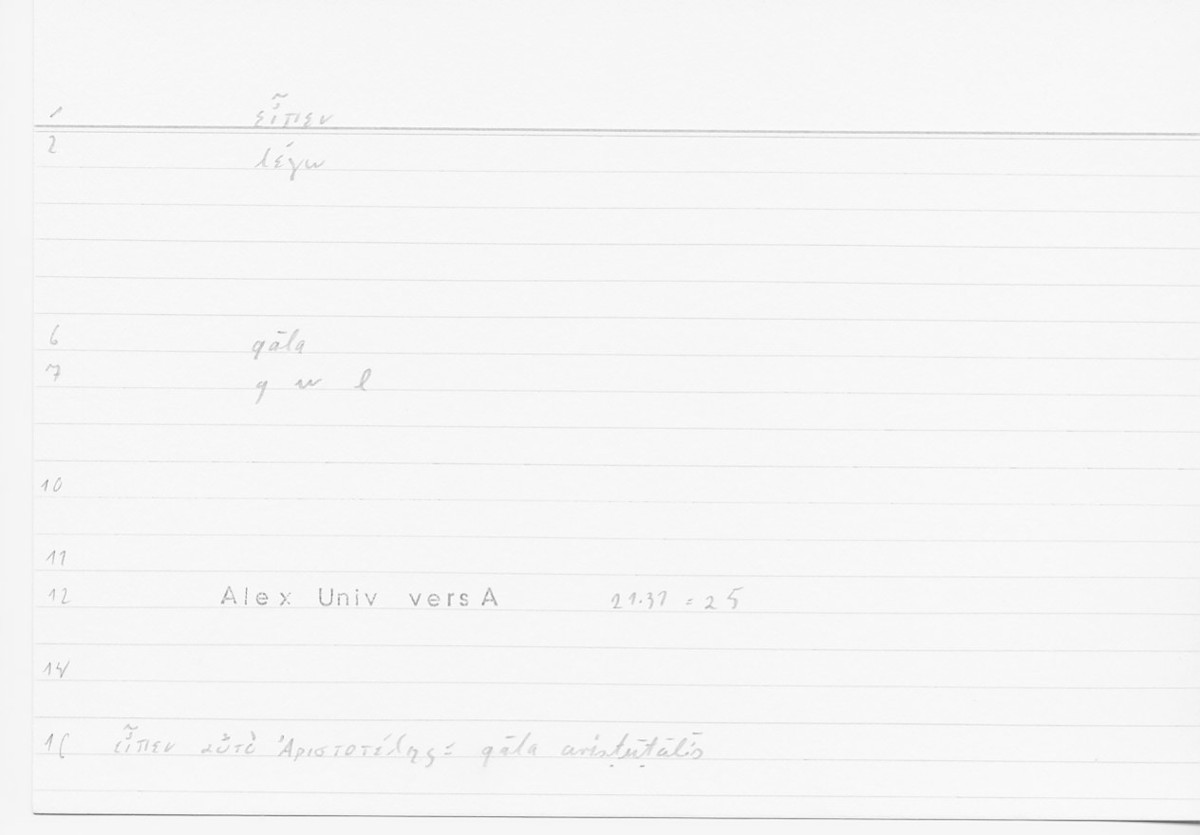 1 εἶπεν
2 λέγω
6 qāla
7 q w l
10
11
12 Alex Univ vers A 21.31 = 25
14
16 εἶπεν αὐτὸ Ἀριστοτέλης = qāla arisṭūṭālīs